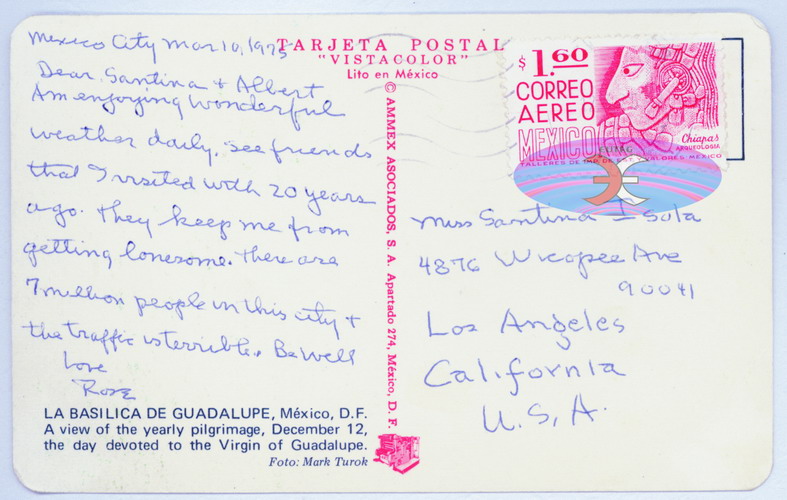 Mexico City Mar 10, 1975
Dear Santina + Albert
Am enjoying wonderful
weather daily, see friends
that I visited with 20 years
ago. They keep me from
getting lonesome. There are
7 million people in this city +
the traffic is terrible. Be well
Love
Rose
LA BASILICA DE GUADALUPE, México, D.F.
A view of the yearly pilgrimage, December 12,
the day devoted to the Virgin of Guadalupe.
Foto: Mark Turok
TARJETA POSTAL
"VISTACOLOR"
Lito en México
© AMMEX ASOCIADOS, S. A. Apartado 274, México, D. F.
$1.60
CORREO
AEREO
MEXICO
Chiapas
ARQUEOLOGIA
TALLERES DE IMP. DE EST. Y VALORES-MEXICO
Miss Santina Isola
4876 Wicopee Ave
90041
Los Angeles
California
U.S.A.